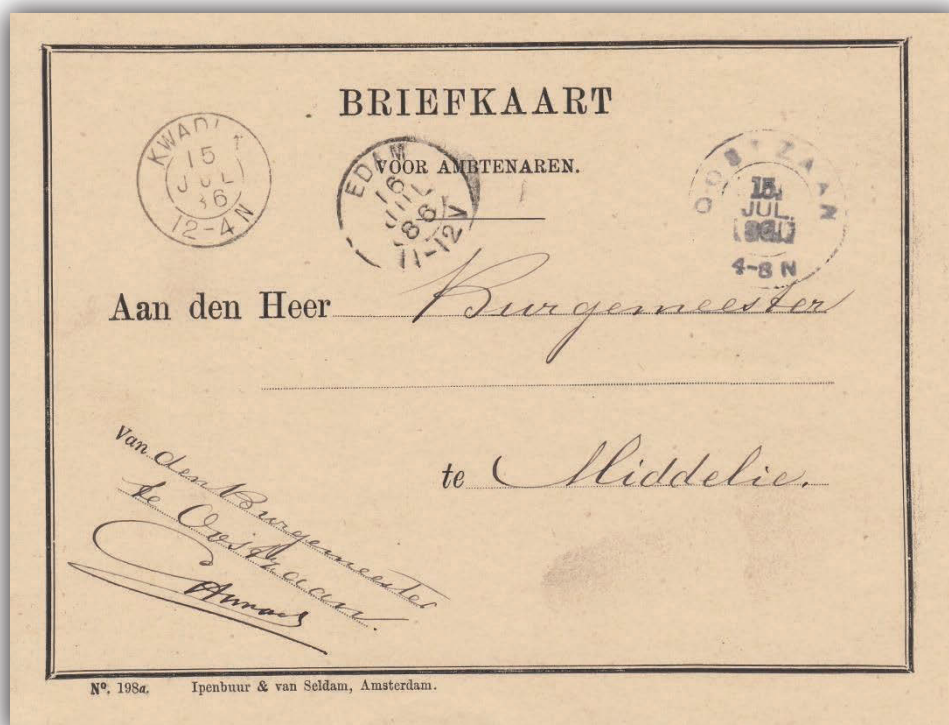 BRIEFKAART
VOOR AMBTENAREN.
KWADI
15
JUL
86
12-4 N
EDAM
16
JUL
86
11-12 V
OOSTZAAN
15
JUL.
86
4-8 N
Aan den Heer Burgemeester
te Middelie.
van den Burgemeester
te Oostzaan.
Nº. 198a. Ipenbuur & van Seldam, Amsterdam.